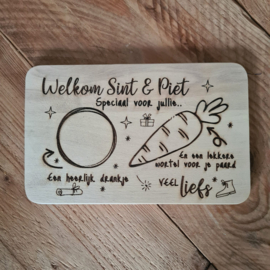 Welkom Sint & Piet
Speciaal voor jullie..
En een lekkere
wortel voor je paard
Een heerlijk drankje
VEEL liefs